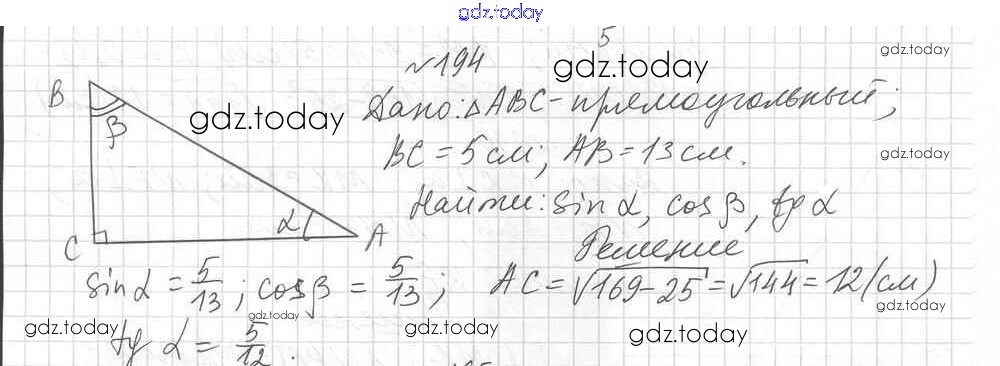 gdz.today
5
№194
gdz.today
gdz.today
B
Дано: △ABC - прямоугольный;
β
gdz.today
BC = 5 см; AB = 13 см.
gdz.today
Найти: sin α, cos β, tg α
α
C
A
Решение
sin α = 5/13; cos β = 5/13; AC = √169-25 = √144 = 12 (см)
gdz.today
gdz.today
gdz.today
gdz.today
gdz.today
tg α = 5/12.